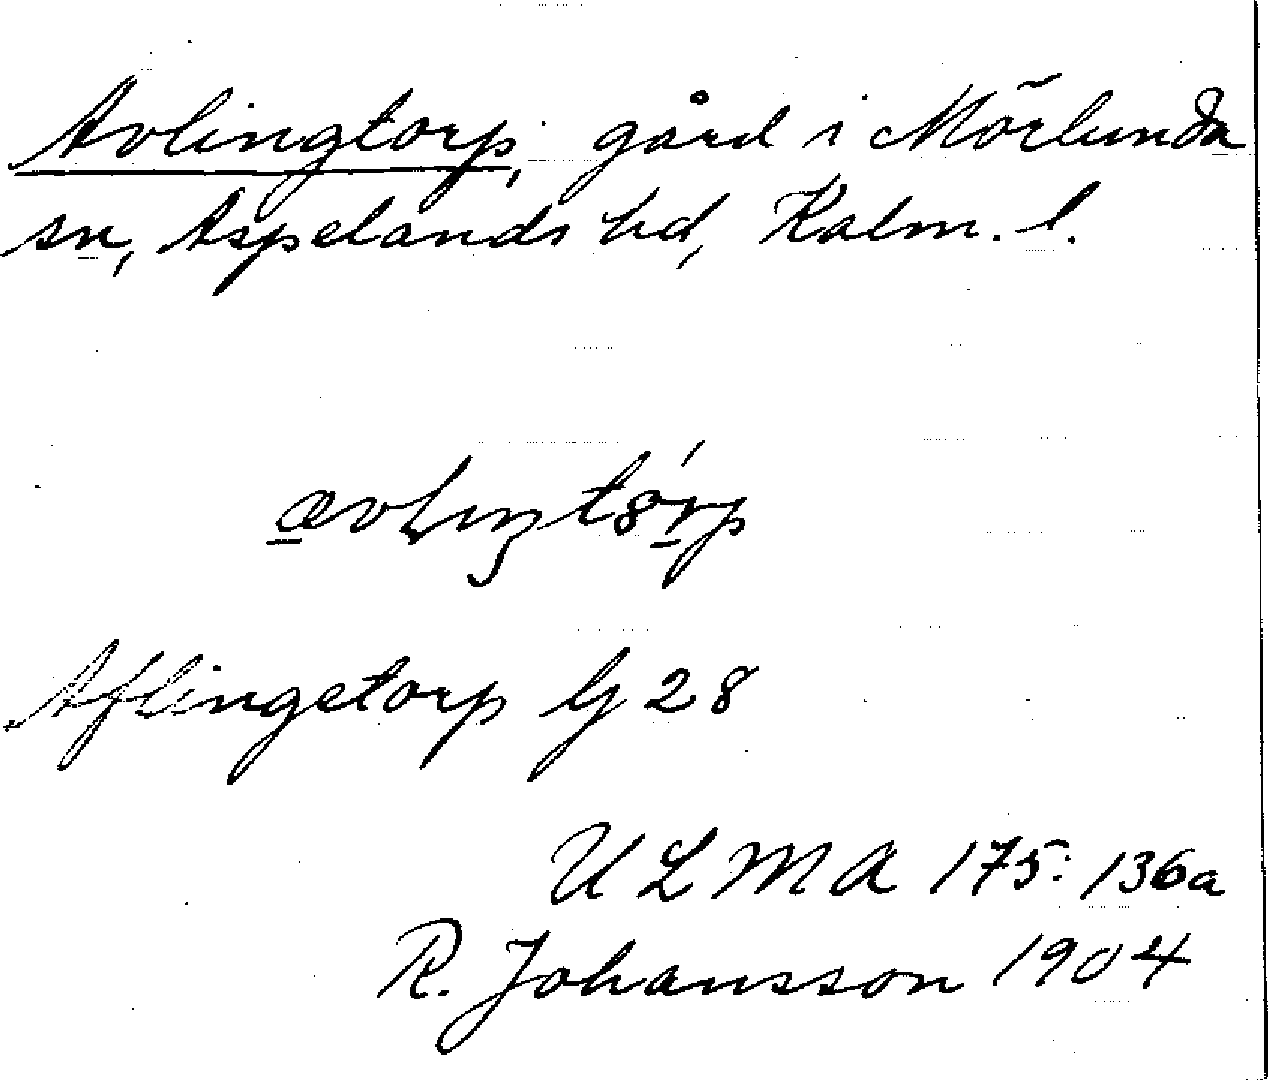 Avlingtorp, gård i Mörlunda
sn, Aspelands hd, Kalm. l.
Aflingetorp G 28
ULMA 175:136a
R. Johansson 1904